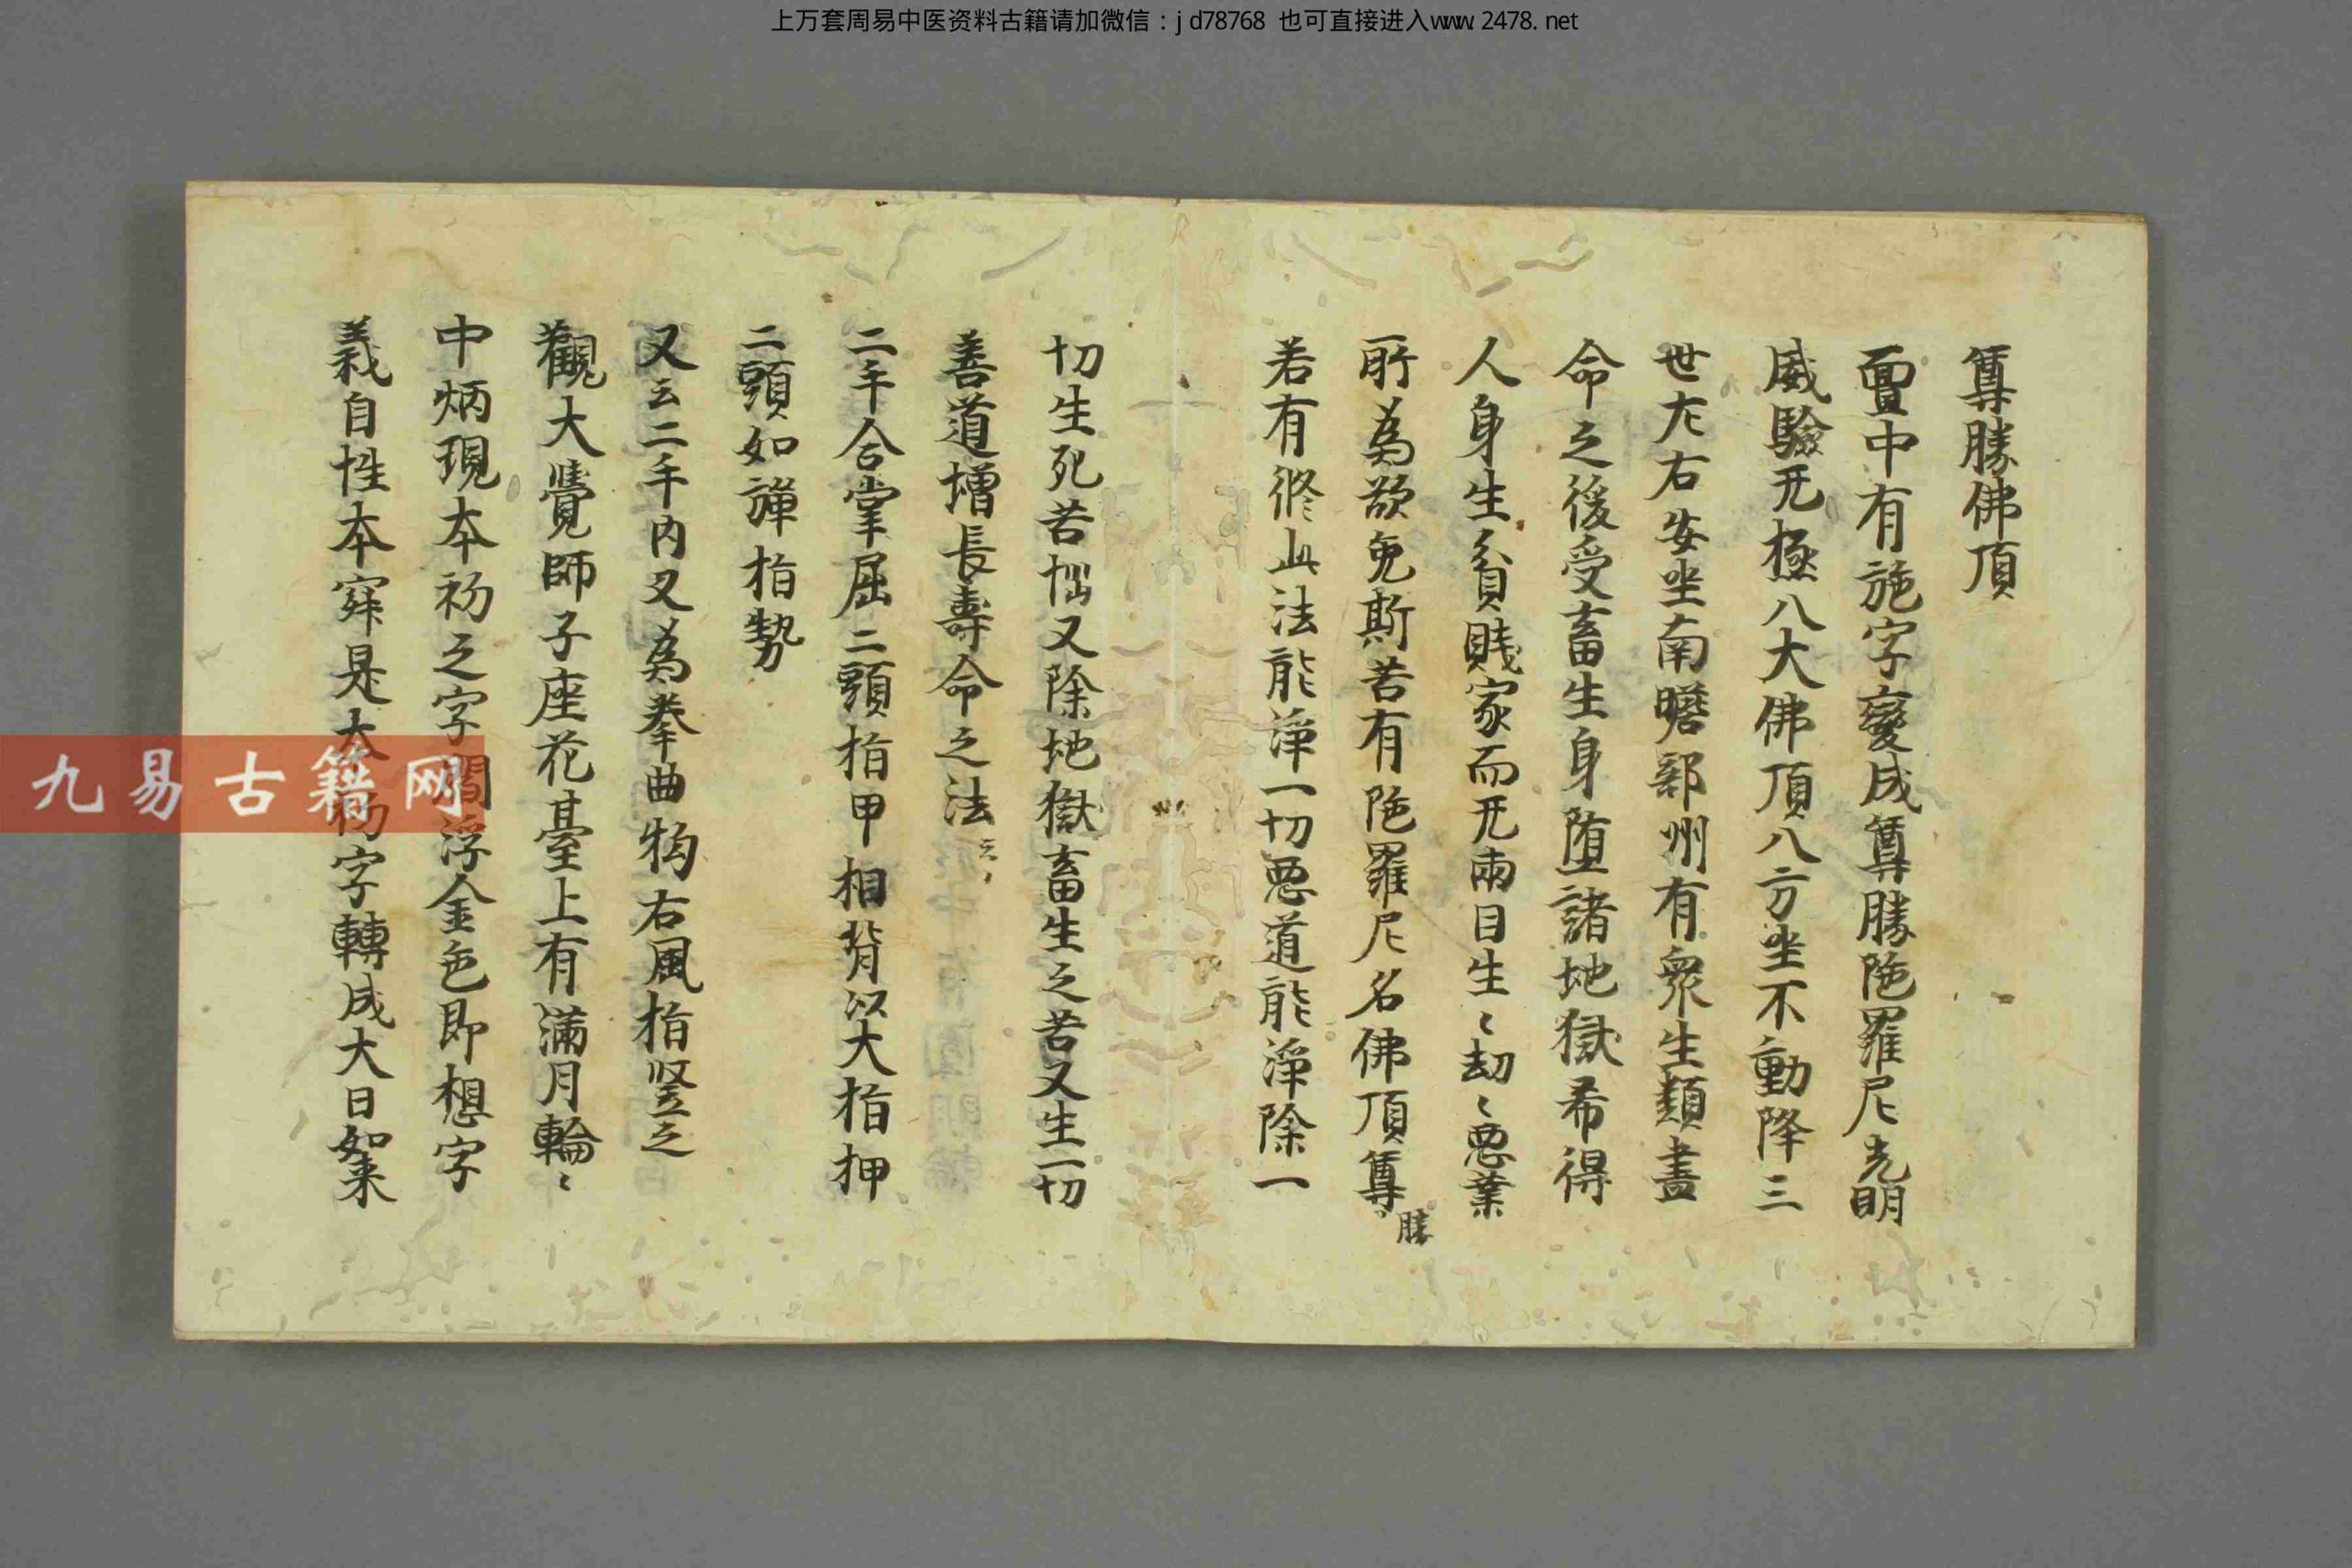 上万套周易中医资料古籍请加微信：jd78768 也可直接进入www.2478.net
尊勝佛頂
置中有施字變成尊勝陁羅尼光明
威驗无極八大佛頂八方坐不動降三
世左右安坐南瞻部州有衆生類盡
命之後受畜生身墮諸地獄希得
人身生貧賤家而无兩目生〻劫〻惡業
所為欲免斯苦有陁羅尼名佛頂尊勝
若有修此法能淨一切惡道能淨除一
切生死苦惱又除地獄畜生之苦又生一切
善道增長壽命之法云〻
二手合掌屈二頭指甲相背以大指押
二頭如彈指勢
又云二手内叉為拳曲拘右風指竪之
觀大覺師子座花臺上有滿月輪〻
中炳現本初之字閻浮金色即想字
義自性本寂是大初字轉成大日如来
九易古籍网